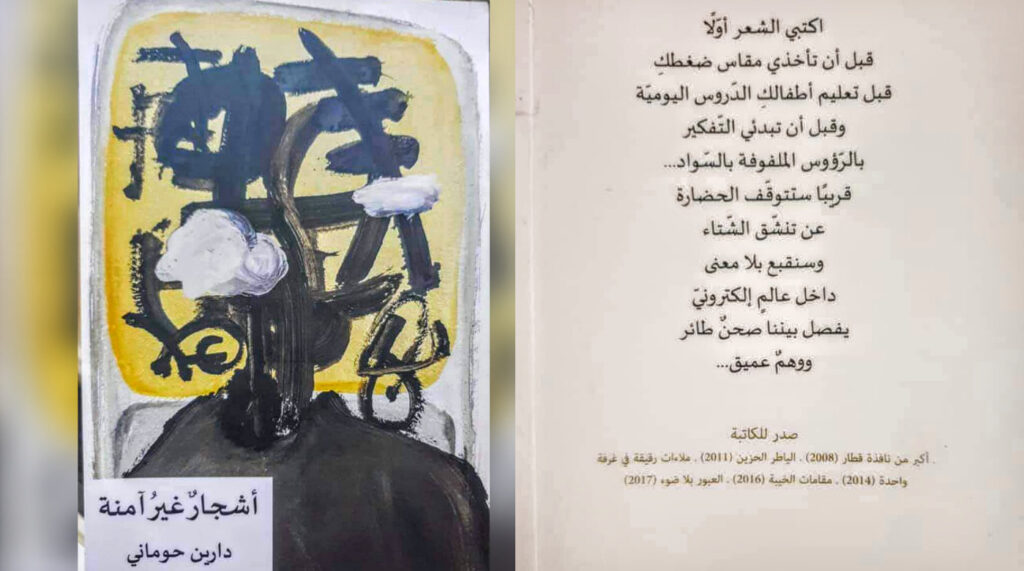 أشجارٌ غيرُ آمنة
دارين حوماني
اكتبي الشعر أوّلًا
قبل أن تأخذي مقاس ضغطكِ
قبل تعليم أطفالكِ الدّروس اليوميّة
وقبل أن تبدئي التّفكير
بالرّؤوس الملفوفة بالسّواد...
قريبًا ستتوقّف الحضارة
عن تنشّق الشّتاء
وسنقبع بلا معنى
داخل عالمٍ إلكترونيّ
يفصل بيننا صحنٌ طائر
ووهمٌ عميق...
صدر للكاتبة
. أكبر من نافذة قطار (2008) . الياطر الحزين (2011) . ملاءات رقيقة في غرفة
واحدة (2014) . مقامات الخيبة (2016) . العبور بلا ضوء (2017)